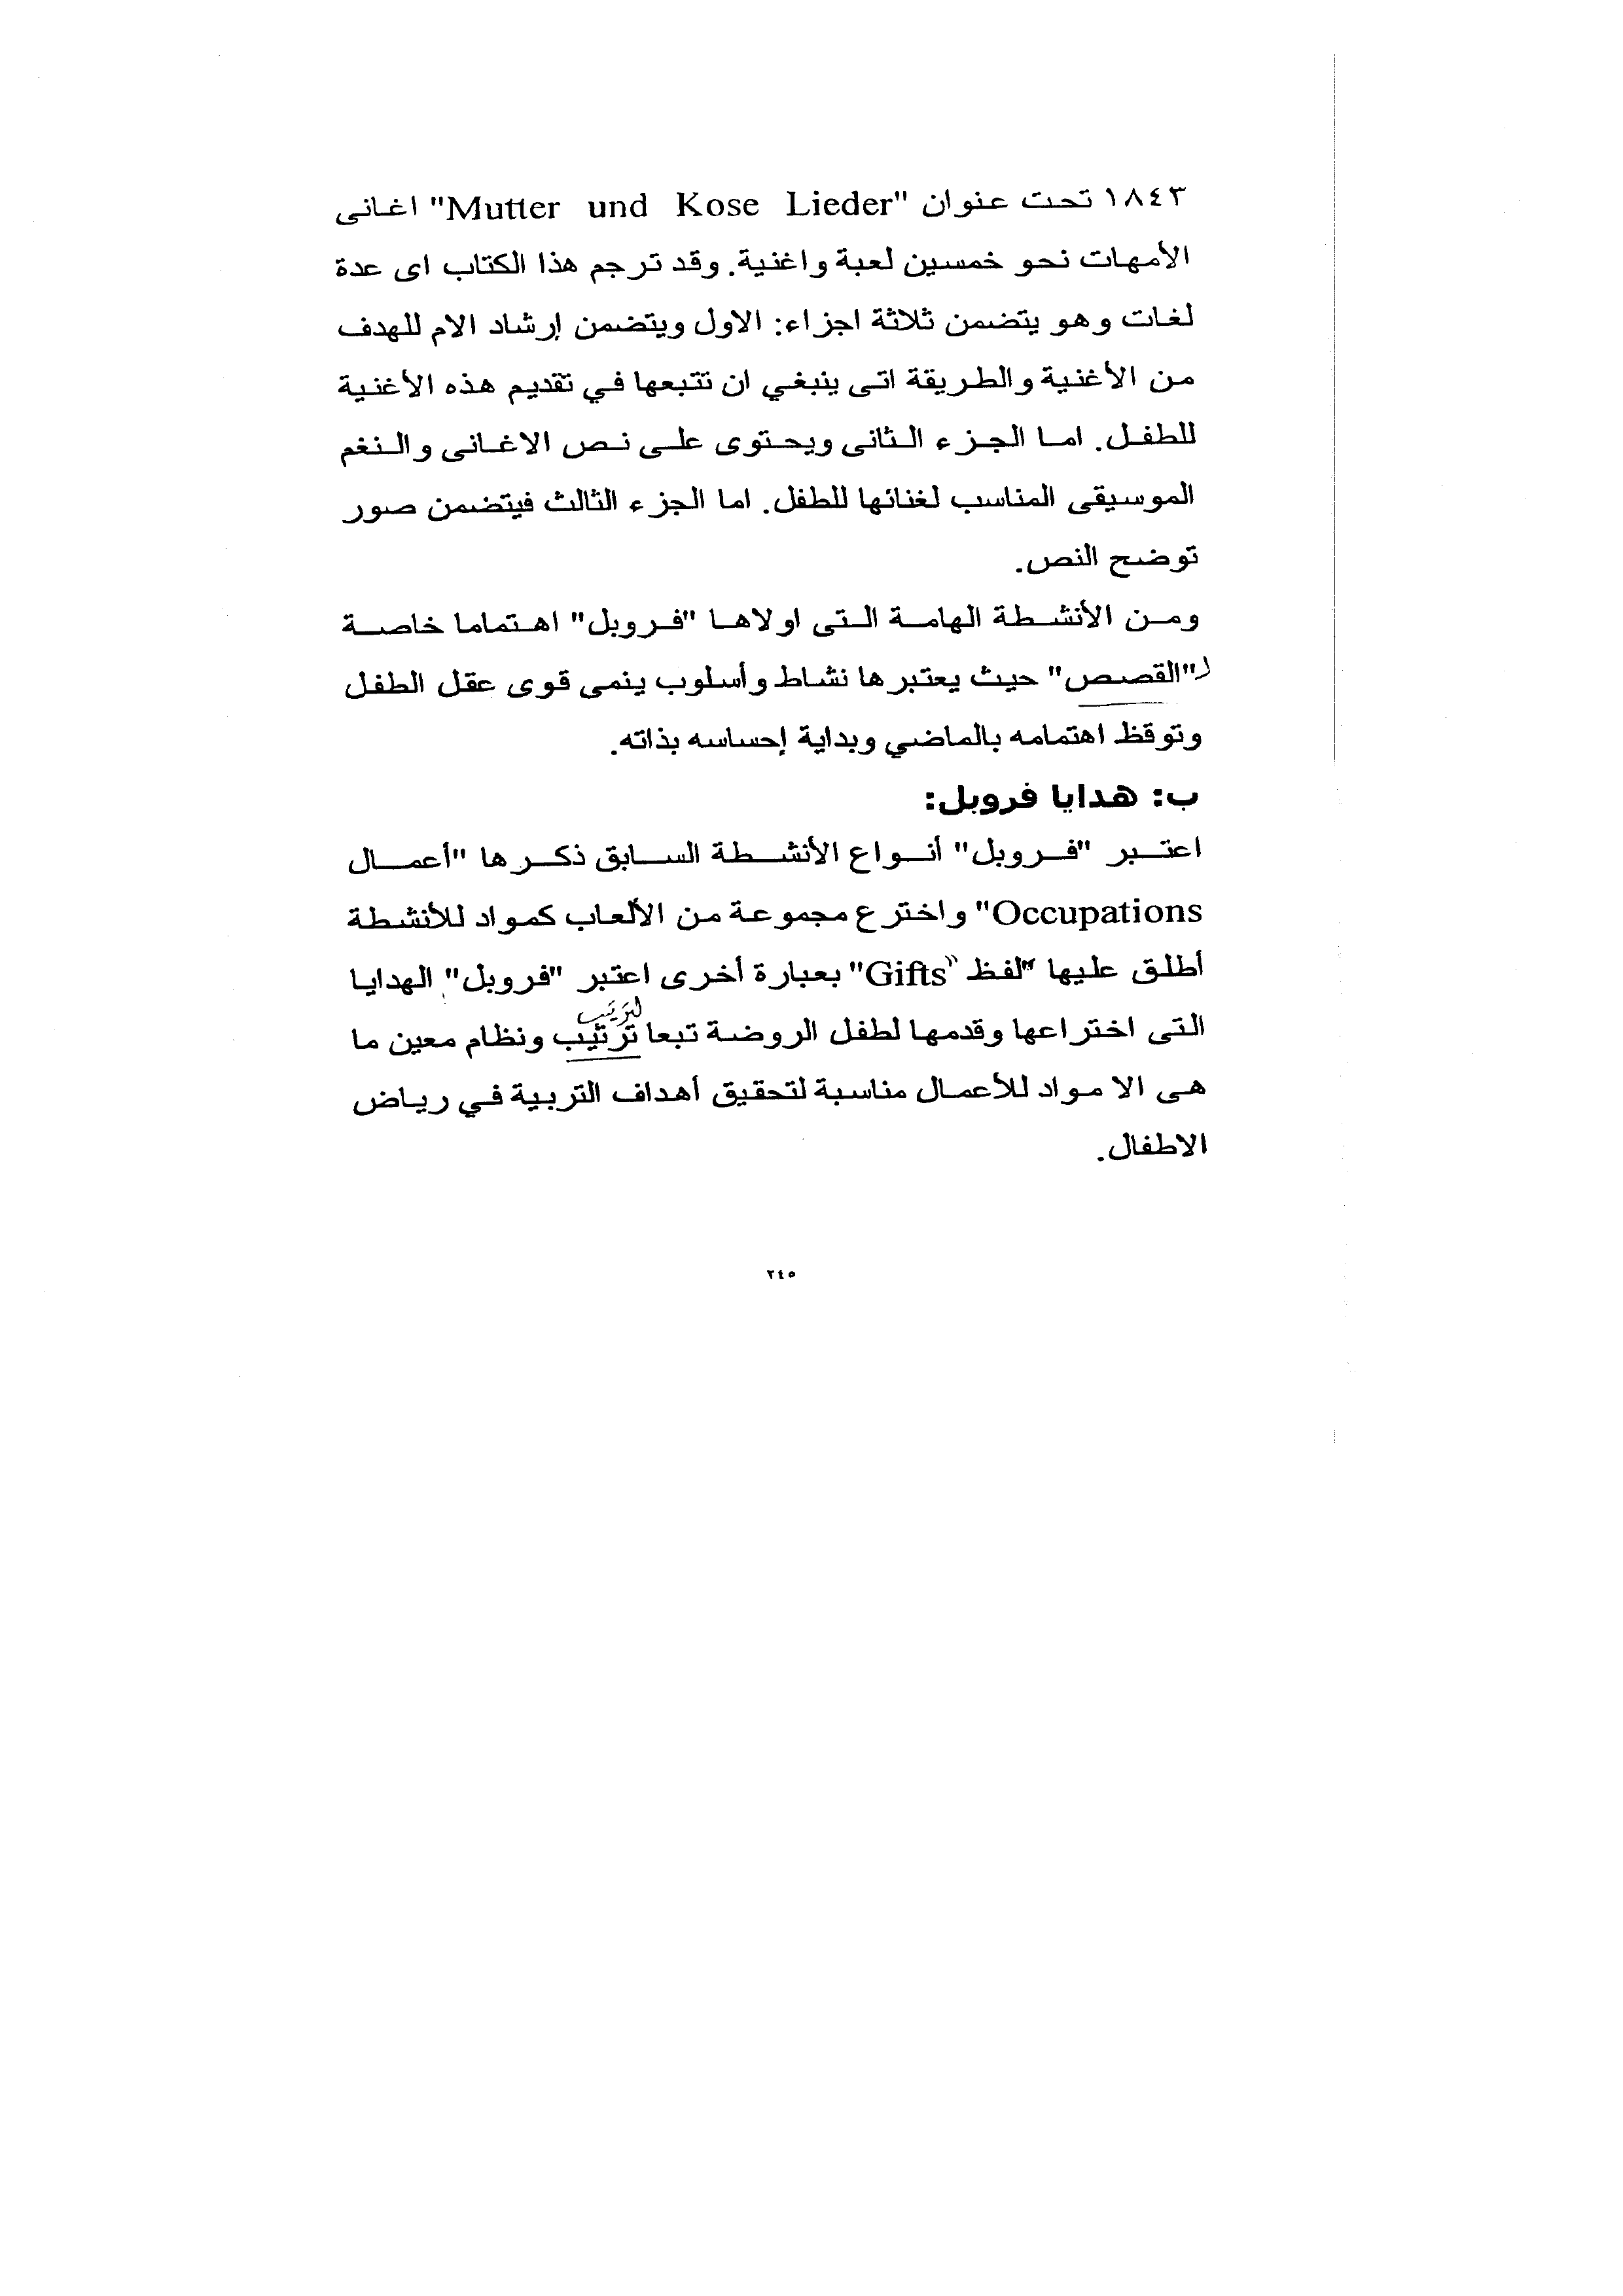 ١٨٤٣ تحت عنوان "Mutter und Kose Lieder" اغانى
الأمهات نحو خمسين لعبة واغنية. وقد ترجم هذا الكتاب اى عدة
لغات وهو يتضمن ثلاثة اجزاء: الاول ويتضمن إرشاد الام للهدف
من الأغنية والطريقة اتى ينبغي ان تتبعها في تقديم هذه الأغنية
للطفل. اما الجزء الثانى ويحتوى على نص الاغانى والنغم
الموسيقى المناسب لغنائها للطفل. اما الجزء الثالث فيتضمن صور
توضح النص.
ومن الأنشطة الهامة التى اولاها "فروبل" اهتماما خاصة
لـ"القصص" حيث يعتبرها نشاط وأسلوب ينمى قوى عقل الطفل
وتوقظ اهتمامه بالماضي وبداية إحساسه بذاته.
ب: هدايا فروبل:
اعتبر "فروبل" أنواع الأنشطة السابق ذكرها "أعمال
Occupations" واخترع مجموعة من الألعاب كمواد للأنشطة
أطلق عليها "لفظ "Gifts" بعبارة أخرى اعتبر "فروبل" الهدايا
لترتيب
التى اختراعها وقدمها لطفل الروضة تبعا ترتيب ونظام معين ما
هى الا مواد للأعمال مناسبة لتحقيق أهداف التربية في رياض
الاطفال.
٢٤٥